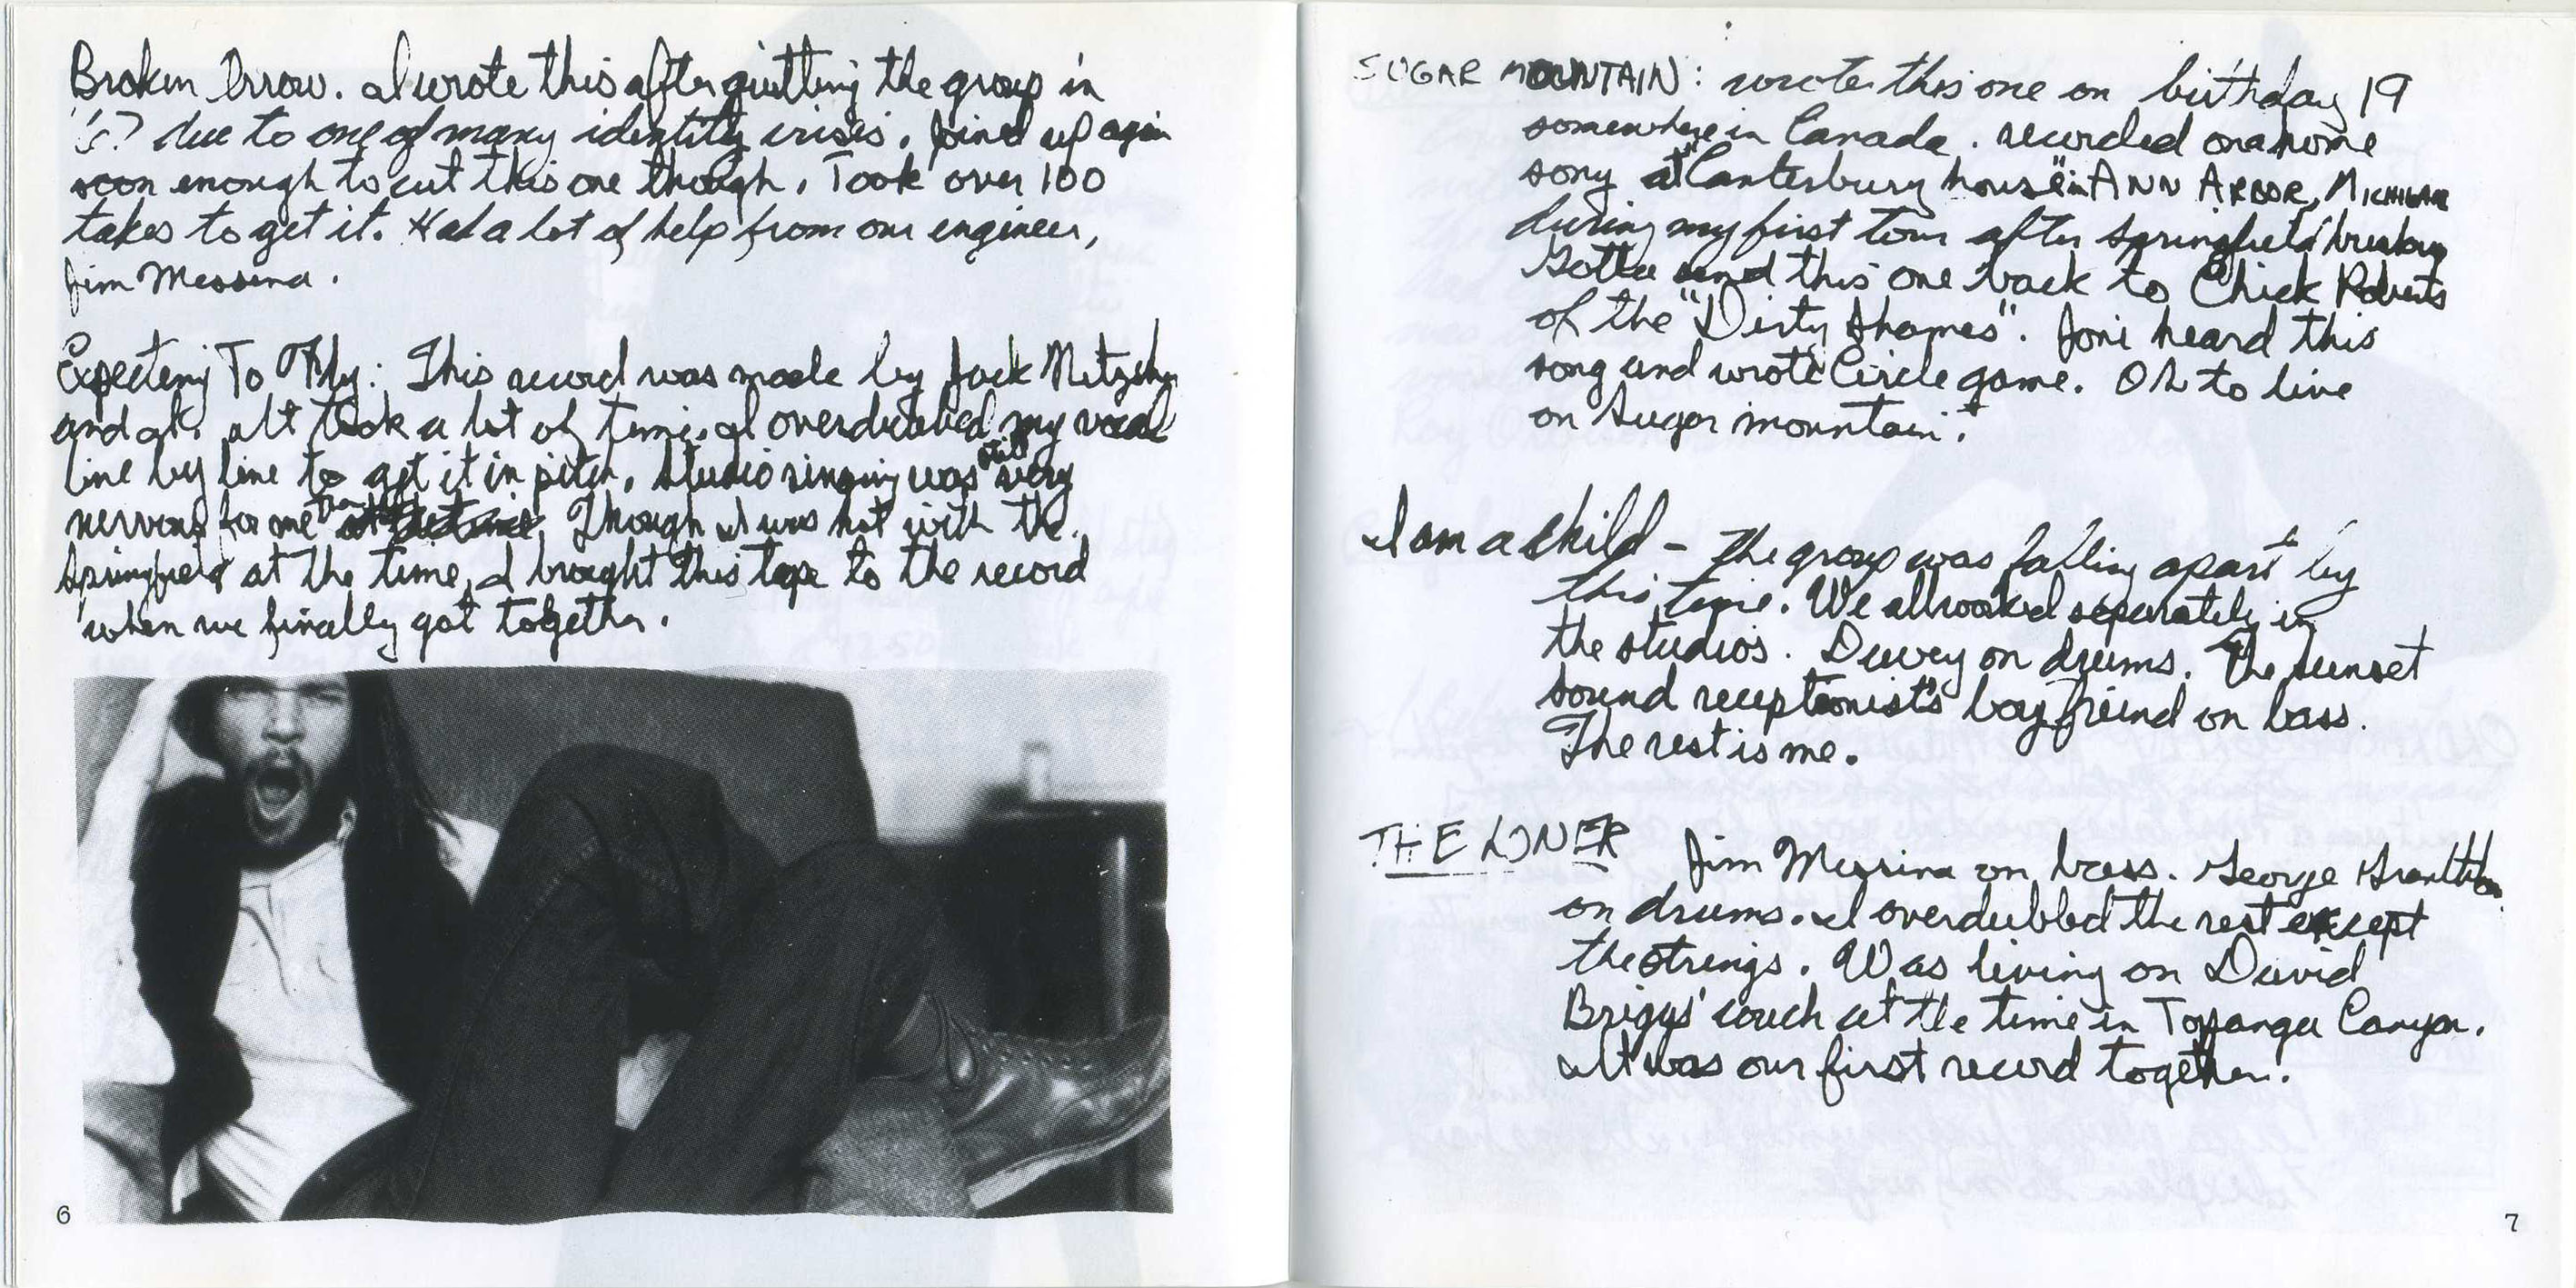 Broken Arrow. I wrote this after quitting the group in
'67 due to one of many identity crisis. Joined up again
soon enough to cut this one though. Took over 100
takes to get it. Had a lot of help from our engineer,
Jim Messina.
Expecting To Fly: This record was made by Jack Nitzsche
and I. It took a lot of time. I overdubbed my vocal
line by line to get it in pitch. Studio singing was still very
nervous for me then. Though I was not with the
Springfield at the time, I brought this tape to the record
when we finally got together.
6
SUGAR MOUNTAIN: wrote this one on birthday 19
somewhere in Canada. recorded on a home
sony at "Canterbury house" in ANN ARBOR, MICHIGAN
during my first tour after Springfield breakup
Gotta send this one back to Chick Roberts
of the "Dirty Shames". Joni heard this
song and wrote Circle game. Oh to live
on Sugar mountain.
I am a child - The group was falling apart by
this time. We all worked separately in
the studios. Dewey on drums. The sunset
sound receptionist's boyfreind on bass.
The rest is me.
THE LONER Jim Messina on bass. George Grantham
on drums. I overdubbed the rest except
the strings. Was living on David
Briggs' couch at the time in Topanga Canyon.
It was our first record together.
7